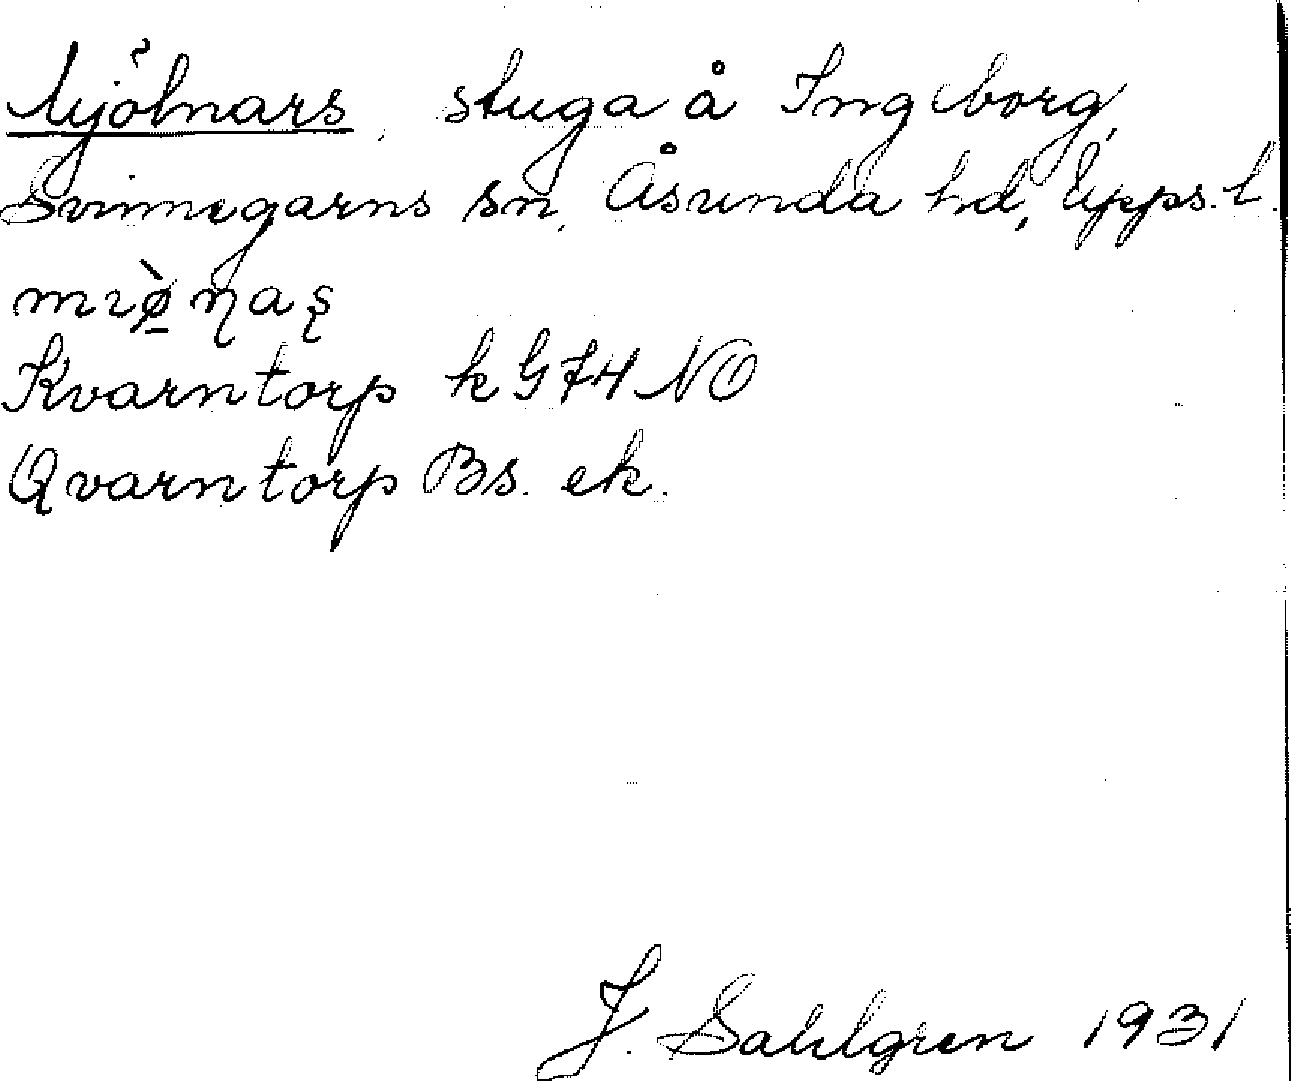 Mjölnars, stuga å Ingeborg,
Svinnegarns sn, Åsunda hd, Upps. l.
Kvarntorp k G74 NO
Qvarntorp Bs. ek.
J. Sahlgren 1931